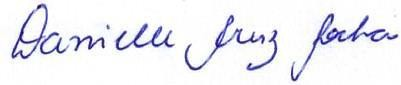 Danielle Cruz Rocha